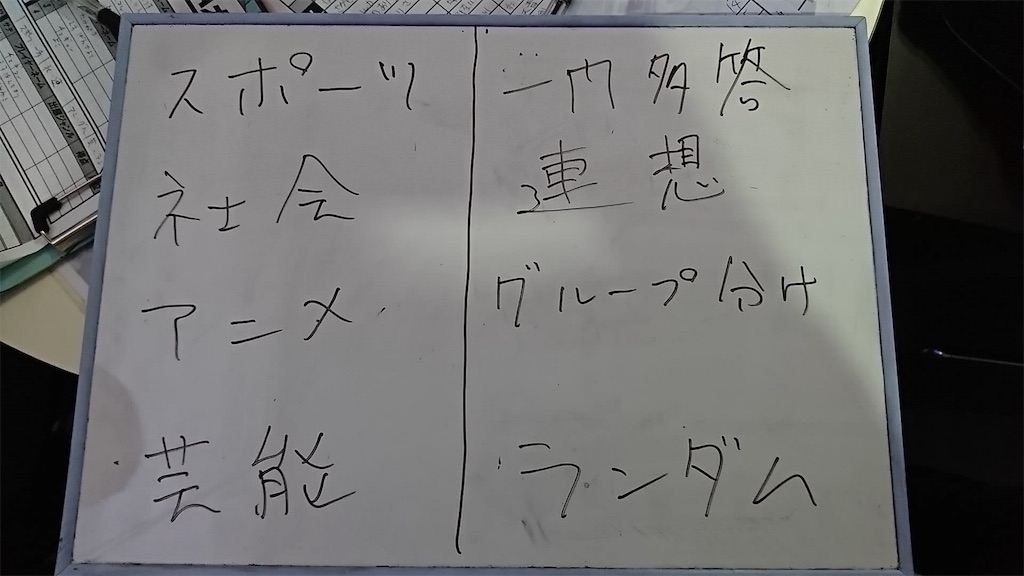 スポーツ
社会
アニメ
芸能
一問多答
連想
グループ分け
ランダム